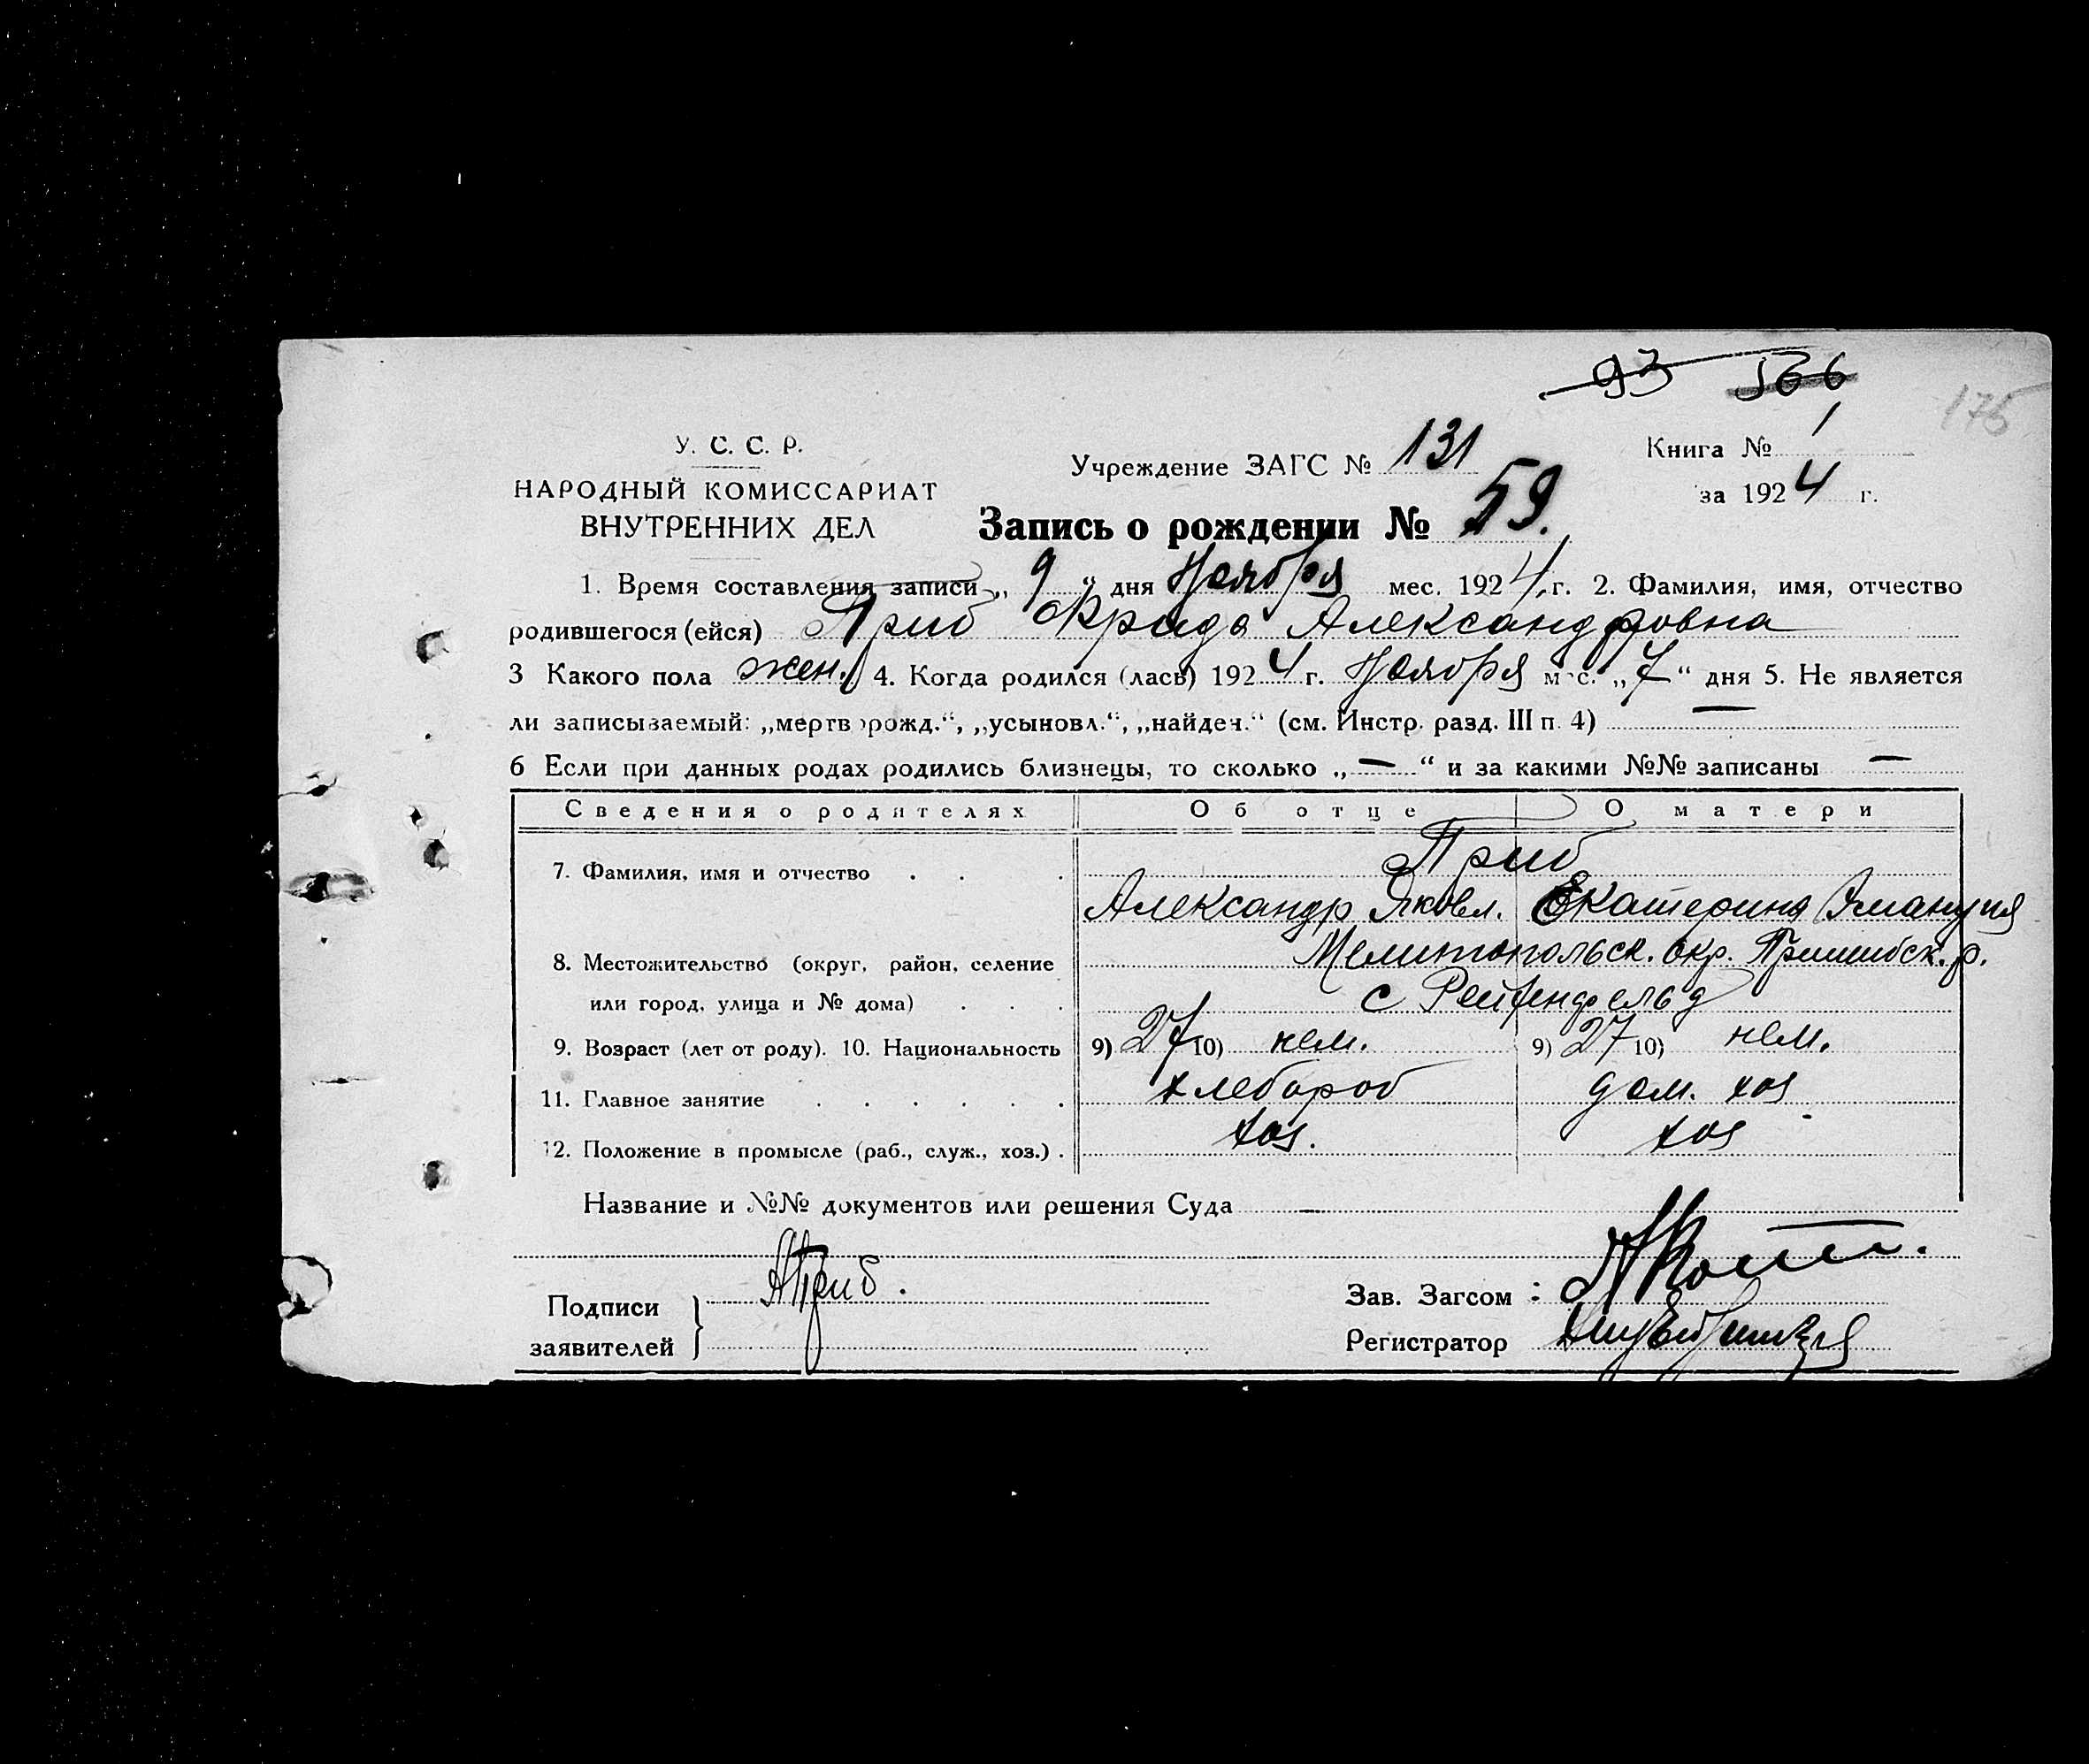 93 566
175
У. С. С. Р.
Учреждение ЗАГС № 131
Книга № 1
НАРОДНЫЙ КОМИССАРИАТ
за 1924 г.
ВНУТРЕННИХ ДЕЛ
Запись о рождении № 59.
1. Время составления записи „ 9 “ дня Ноября мес. 1924 г. 2. Фамилия, имя, отчество
родившегося (ейся) Приб Фрида Александровна
3 Какого пола жен. 4. Когда родился (лась) 1924 г. Ноября мес. „ 7 “ дня 5. Не является
ли записываемый: „мертворожд.“, „усыновл.“, „найден.“ (см. Инстр. разд. III п. 4) —
6 Если при данных родах родились близнецы, то сколько „ — “ и за какими №№ записаны —
Сведения о родителях Об отце О матери
7. Фамилия, имя и отчество Приб
Александр Яковл. Екатерина
8. Местожительство (округ, район, селение Мелитопольск. окр. Пришибск. р.
или город, улица и № дома) с Рейхенфельд
9. Возраст (лет от роду). 10. Национальность 9) 27 10) нем. 9) 27 10) нем.
11. Главное занятие хлебороб дом. хоз
12. Положение в промысле (раб., служ., хоз.) хоз. хоз
Название и №№ документов или решения Суда —
Подписи заявителей } АПриб.
Зав. Загсом :
Регистратор